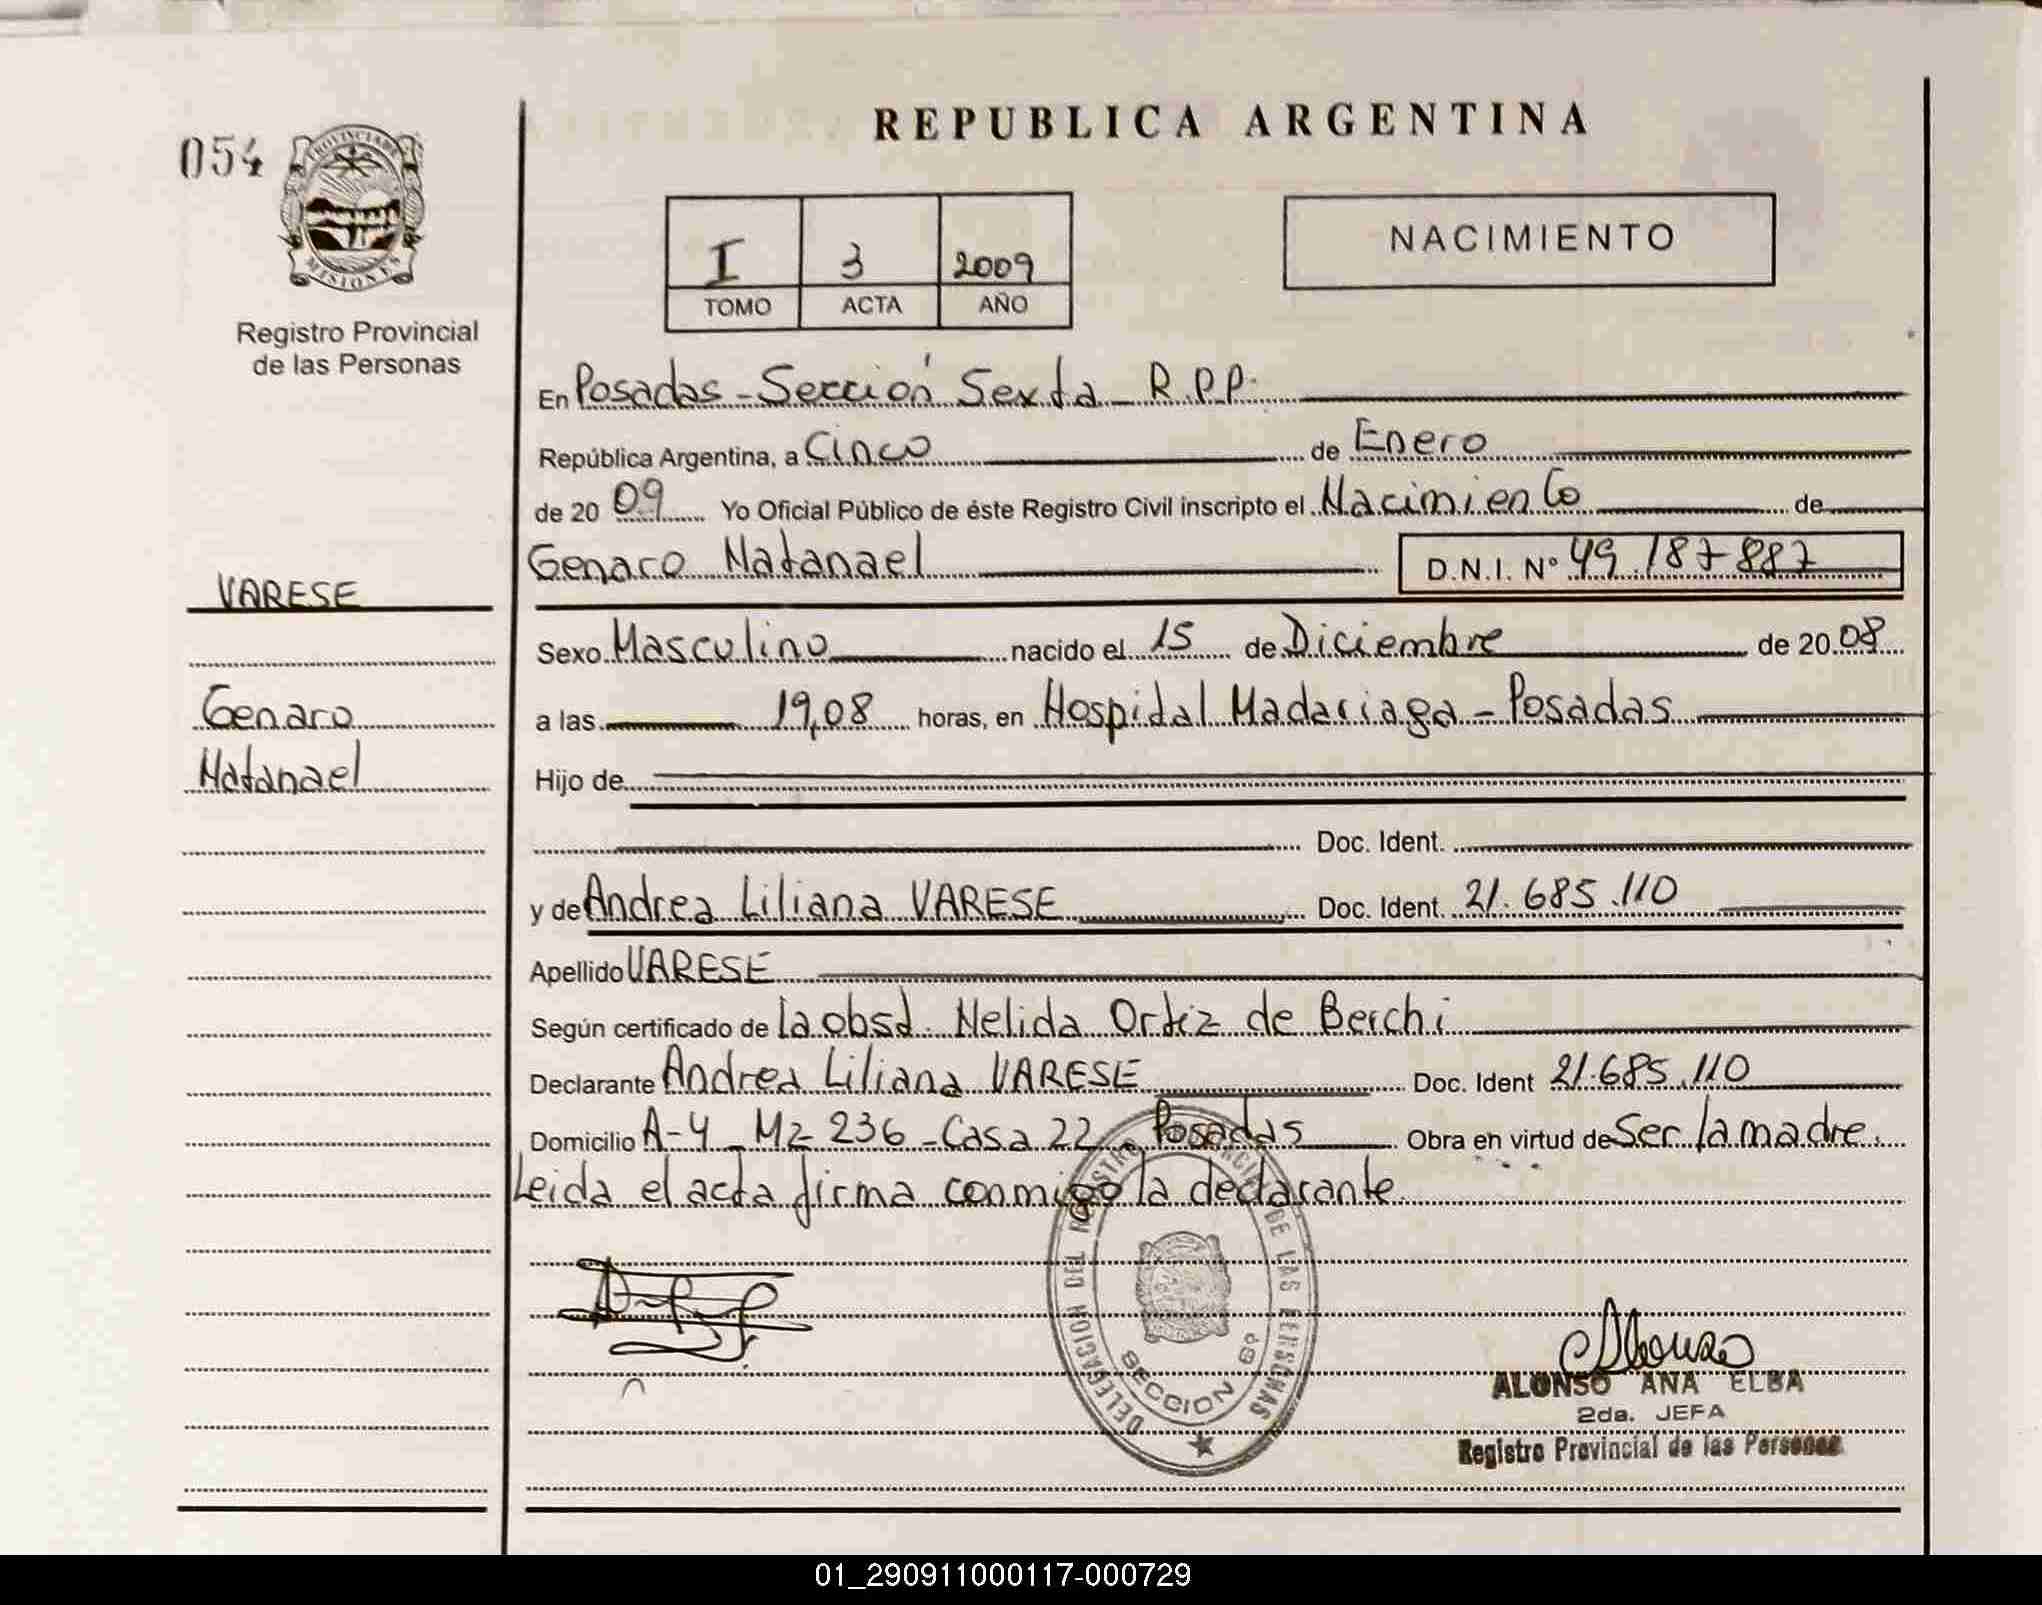 054
PROVINCIA DE
MISIONES
Registro Provincial
de las Personas
VARESE
Genaro
Natanael
REPUBLICA ARGENTINA
I 3 2009
TOMO ACTA AÑO
NACIMIENTO
En Posadas - Sección Sexta - R.P.P.
República Argentina, a Cinco de Enero
de 20 09 Yo Oficial Público de éste Registro Civil inscripto el Nacimiento de
Genaro Natanael D.N.I. Nº 49.187.887
Sexo Masculino nacido el 15 de Diciembre de 20 08
a las 19,08 horas, en Hospital Madariaga - Posadas
Hijo de
Doc. Ident.
y de Andrea Liliana VARESE Doc. Ident. 21.685.110
Apellido VARESE
Según certificado de la obst. Nelida Ortiz de Berchi
Declarante Andrea Liliana VARESE Doc. Ident 21.685.110
Domicilio A-4 - Mz 236 - Casa 22 - Posadas Obra en virtud de Ser la madre.
Leida el acta firma conmigo la declarante
DELEGACION DEL REGISTRO PROVINCIAL DE LAS PERSONAS
SECCION 6ª
ALONSO ANA ELBA
2da. JEFA
Registro Provincial de las Personas
01_290911000117-000729